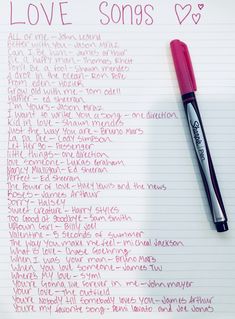 LOVE Songs ♡♡
All of me - John Legend
Better with you - Jason Mraz
Can I be him - James Arthur
Die a happy man - Thomas Rhett
Don't be a fool - Shawn mendes
A drop in the ocean - Ron Pope
From eden - Hozier
Grow old with me - Tom odell
Happier - ed sheeran
I'm Yours - Jason Mraz
I want to write you a song - one direction
Kid in love - Shawn mendes
Just the way you are - Bruno Mars
La Da Dee - Cody Simpson
Let Her Go - Passenger
Little things - one direction
Love someone - Lukas Graham
Nancy Mulligan - Ed Sheeran
Perfect - Ed Sheeran
The Power of love - Huey Lewis and the news
Roses - James Arthur
Sorry - Halsey
Sweet creature - Harry Styles
Too Good at Goodbyes - Sam Smith
Uptown Girl - Billy Joel
Valentine - 5 seconds of summer
The way you make me feel - micheal Jackson
What is love - Chase Goehring
When I was your man - Bruno Mars
When you love someone - James TW
Where's my love - syml
You're gonna live forever in me - John mayer
Your love - The outfield
You're Nobody till somebody loves you - James Arthur
You're my favorite song - Demi Lovato and Joe Jonas
Sharpie